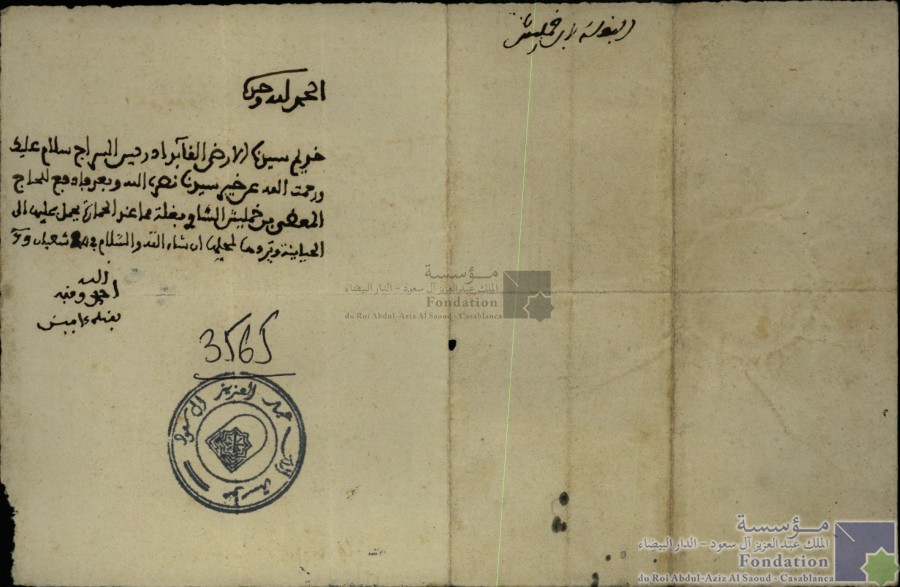 الحمد لله وحده
خديم سيدنا الارضى القائد ادريس السراج سلام عليك
ورحمت الله عن خير سيدنا نصره الله وبعد فادفع للحاج
المعطي بن خمليش الشاوي بغلة مما عند الحمارة يحمل عليها الى
الحياينة ويردها لمحلها ان شاء الله والسلام في شعبان
الله
3565
عبد العزيز آل سعود
مؤسسة
مـؤسـسـة
الملك عبد العزيز آل سعود - الدار البيضاء
Fondation
du Roi Abdul-Aziz Al Saoud - Casablanca
مـؤسـسـة
الملك عبد العزيز آل سعود - الدار البيضاء
Fondation
du Roi Abdul-Aziz Al Saoud - Casablanca